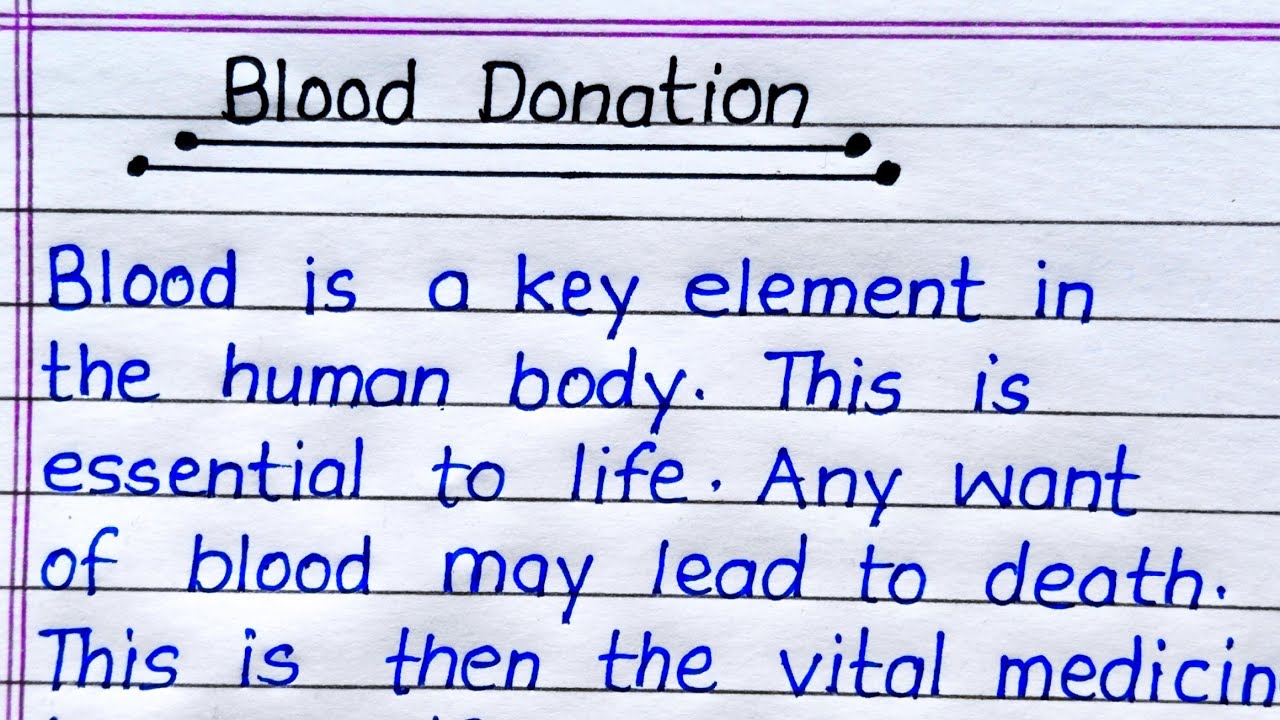 Blood Donation
Blood is a key element in
the human body. This is
essential to life. Any want
of blood may lead to death.
This is then the vital medicin